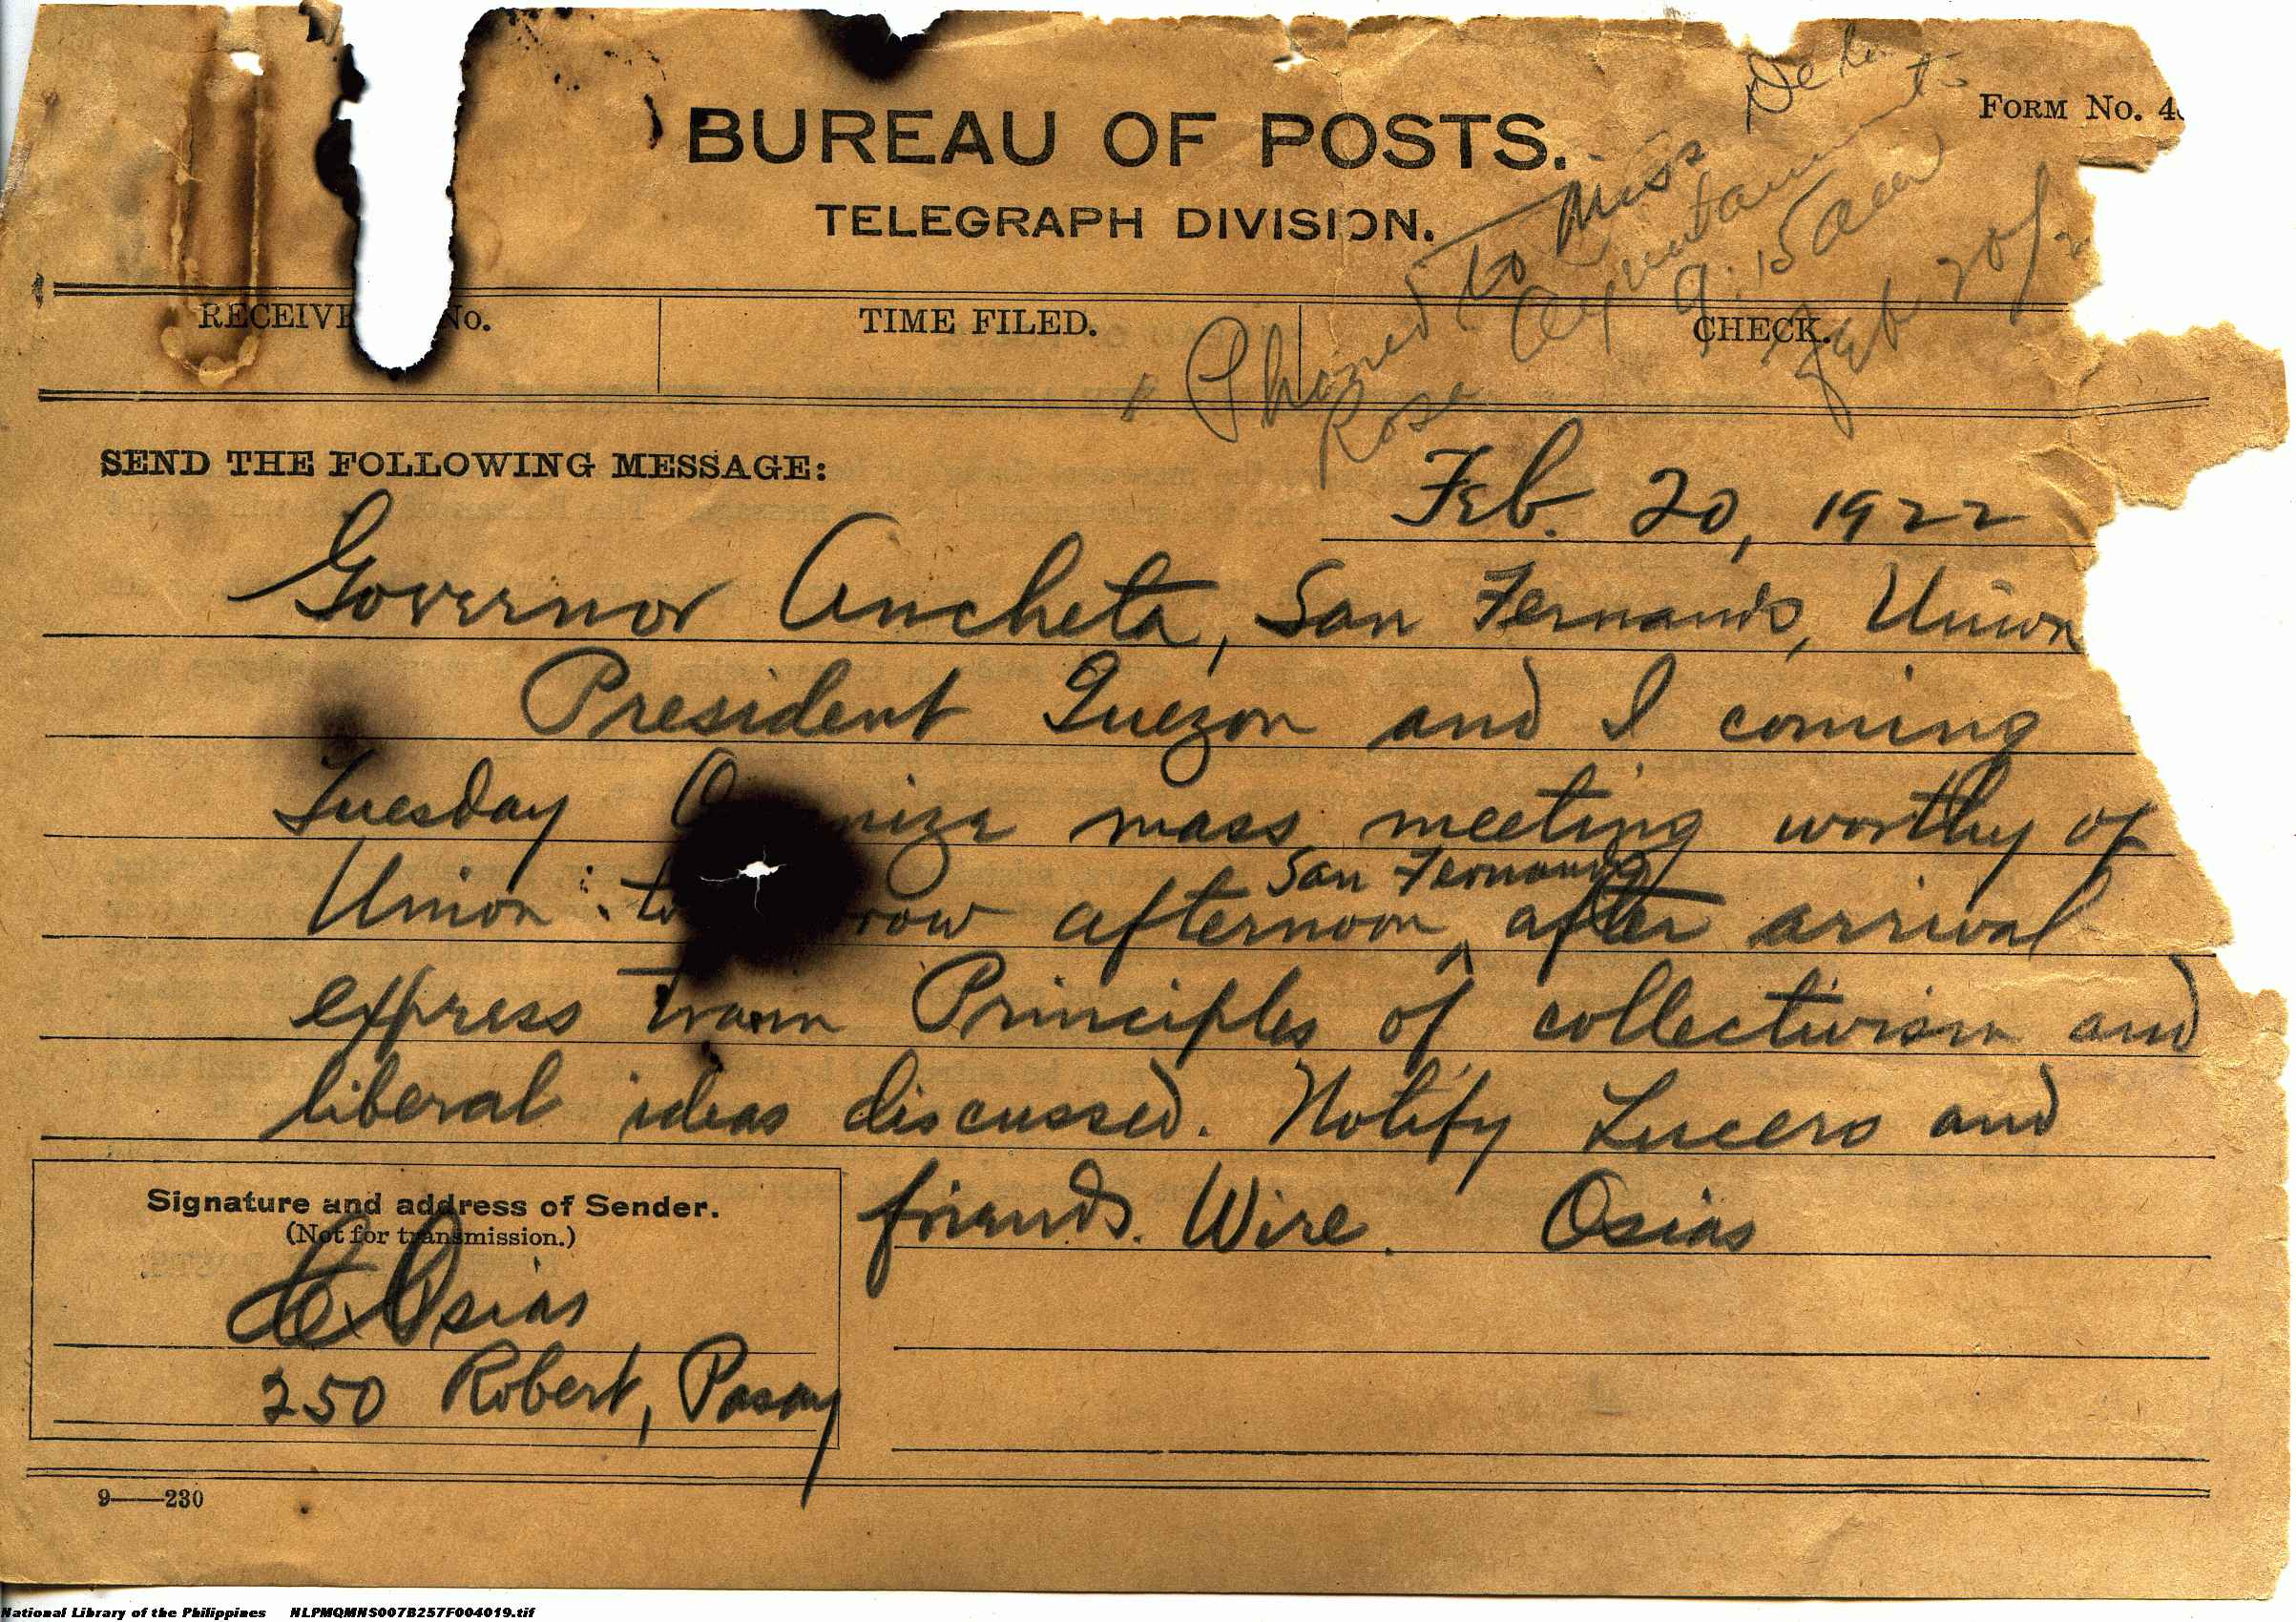 BUREAU OF POSTS.
TELEGRAPH DIVISION.
FORM No. 4
Phoned to Miss
Rosa Ayuntamiento
9:15 am
Feb 20/2
RECEIV No.
TIME FILED.
CHECK.
SEND THE FOLLOWING MESSAGE:
Feb. 20, 1922
Governor Ancheta, San Fernando, Union
President Quezon and I coming
Tuesday O niza mass meeting worthy of
San Fernando
Union : to row afternoon after arrival
express train Principles of collectivism and
liberal ideas discussed. Notify Lucero and
friends. Wire. Osias
Signature and address of Sender.
(Not for transmission.)
C Osias
250 Robert, Pasay
9——230
National Library of the Philippines NLPMQMNS007B257F004019.tif